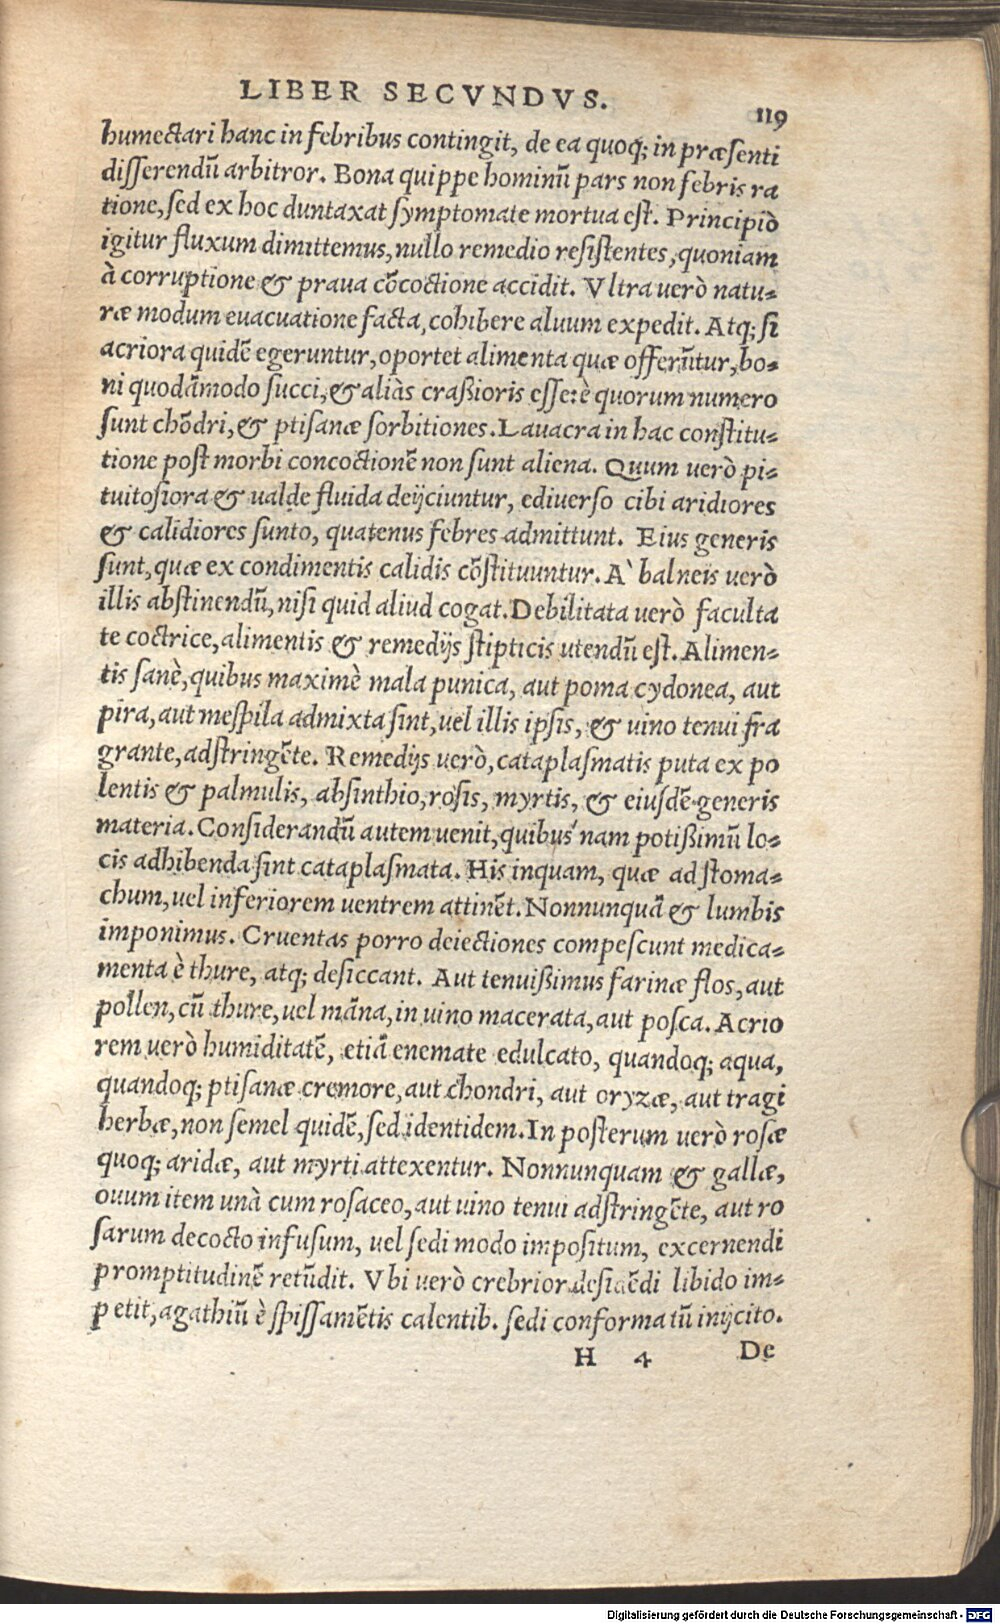 LIBER SECVNDVS.
119
humectari hanc in febribus contingit, de ea quoq; in præsenti
disserendũ arbitror. Bona quippe hominũ pars non febris ra
tione, sed ex hoc duntaxat symptomate mortua est. Principiò
igitur fluxum dimittemus, nullo remedio resistentes, quoniam
à corruptione & praua cõcoctione accidit. Vltra uerò natu-
ræ modum euacuatione facta, cohibere aluum expedit. Atq; si
acriora quidẽ egeruntur, oportet alimenta quæ offerũtur, bo-
ni quodãmodo succi, & aliàs craßioris esse: è quorum numero
sunt chõdri, & ptisanæ sorbitiones. Lauacra in hac constitu-
tione post morbi concoctionẽ non sunt aliena. Quum uerò pi-
tuitosiora & ualde fluida deijciuntur, ediuerso cibi aridiores
& calidiores sunto, quatenus febres admittunt. Eius generis
sunt, quæ ex condimentis calidis cõstituuntur. A` balneis uerò
illis abstinendũ, nisi quid aliud cogat. Debilitata uerò faculta
te coctrice, alimentis & remedijs stipticis utendũ est. Alimen-
tis sanè, quibus maximè mala punica, aut poma cydonea, aut
pira, aut mespila admixta sint, uel illis ipsis, & uino tenui fra
grante, adstringẽte. Remedijs uerò, cataplasmatis puta ex po
lentis & palmulis, absinthio, rosis, myrtis, & eiusdẽ generis
materia. Considerandũ autem uenit, quibus nam potißimũ lo-
cis adhibenda sint cataplasmata. His inquam, quæ ad stoma-
chum, uel inferiorem uentrem attinẽt. Nonnunquã & lumbis
imponimus. Cruentas porro deiectiones compescunt medica-
menta è thure, atq; desiccant. Aut tenuißimus farinæ flos, aut
pollen, cũ thure, uel mãna, in uino macerata, aut posca. Acrio
rem uerò humiditatẽ, etiã enemate edulcato, quandoq; aqua,
quandoq; ptisanæ cremore, aut chondri, aut oryzæ, aut tragi
herbæ, non semel quidẽ, sed identidem. In posterum uerò rosæ
quoq; aridæ, aut myrti attexentur. Nonnunquam & gallæ,
ouum item unà cum rosaceo, aut uino tenui adstringẽte, aut ro
sarum decocto infusum, uel sedi modo impositum, excernendi
promptitudinẽ retũdit. Vbi uerò crebrior desidẽdi libido im-
petit, agathiũ è spissamẽtis calentib. sedi conformatũ inijcito.
H 4 De
Digitalisierung gefördert durch die Deutsche Forschungsgemeinschaft - DFG